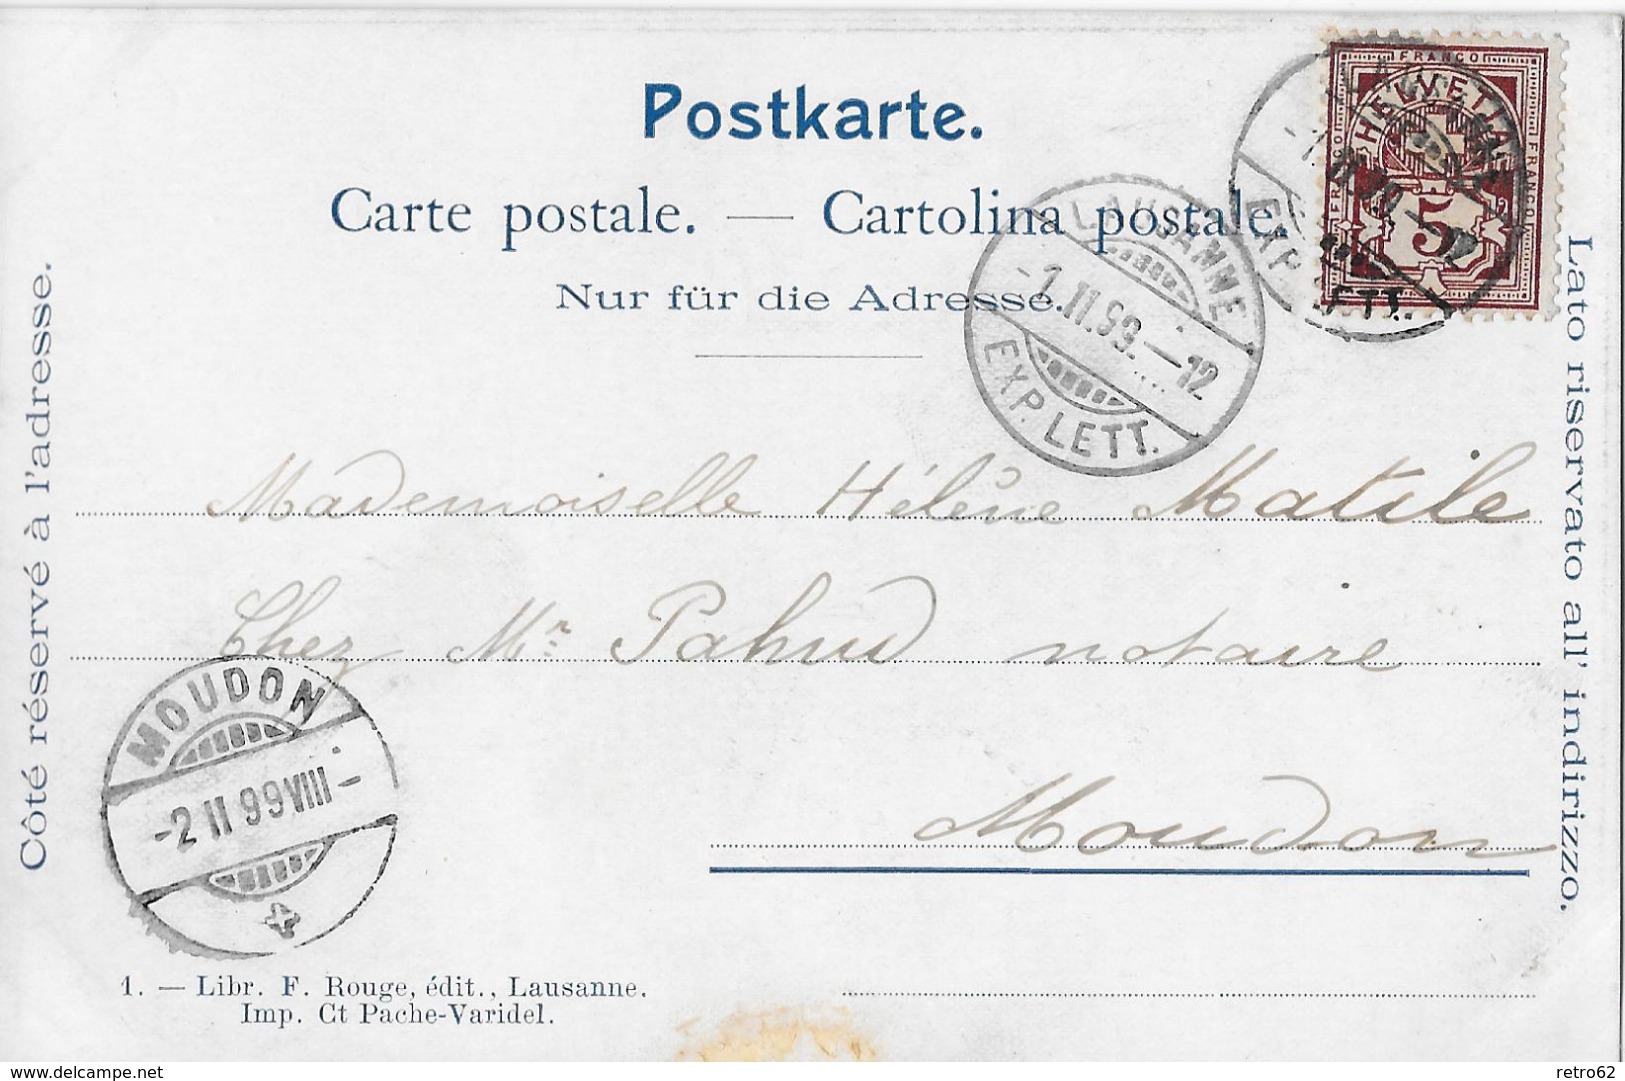 Postkarte.
Carte postale. — Cartolina postale.
Nur für die Adresse.
Côté réservé à l'adresse.
Lato riservato all' indirizzo.
FRANCO
HELVETIA
FRANCO
FRANCO
5
LAUSANNE
EXP. LETT.
LAUSANNE
-1.II.99.-12
EXP. LETT.
Mademoiselle Hélène Matile
Chez Mr Pahud notaire
Moudon
MOUDON
-2 II 99 VIII-
1. — Libr. F. Rouge, édit., Lausanne.
Imp. Ct Pache-Varidel.
delcampe.net
retro62